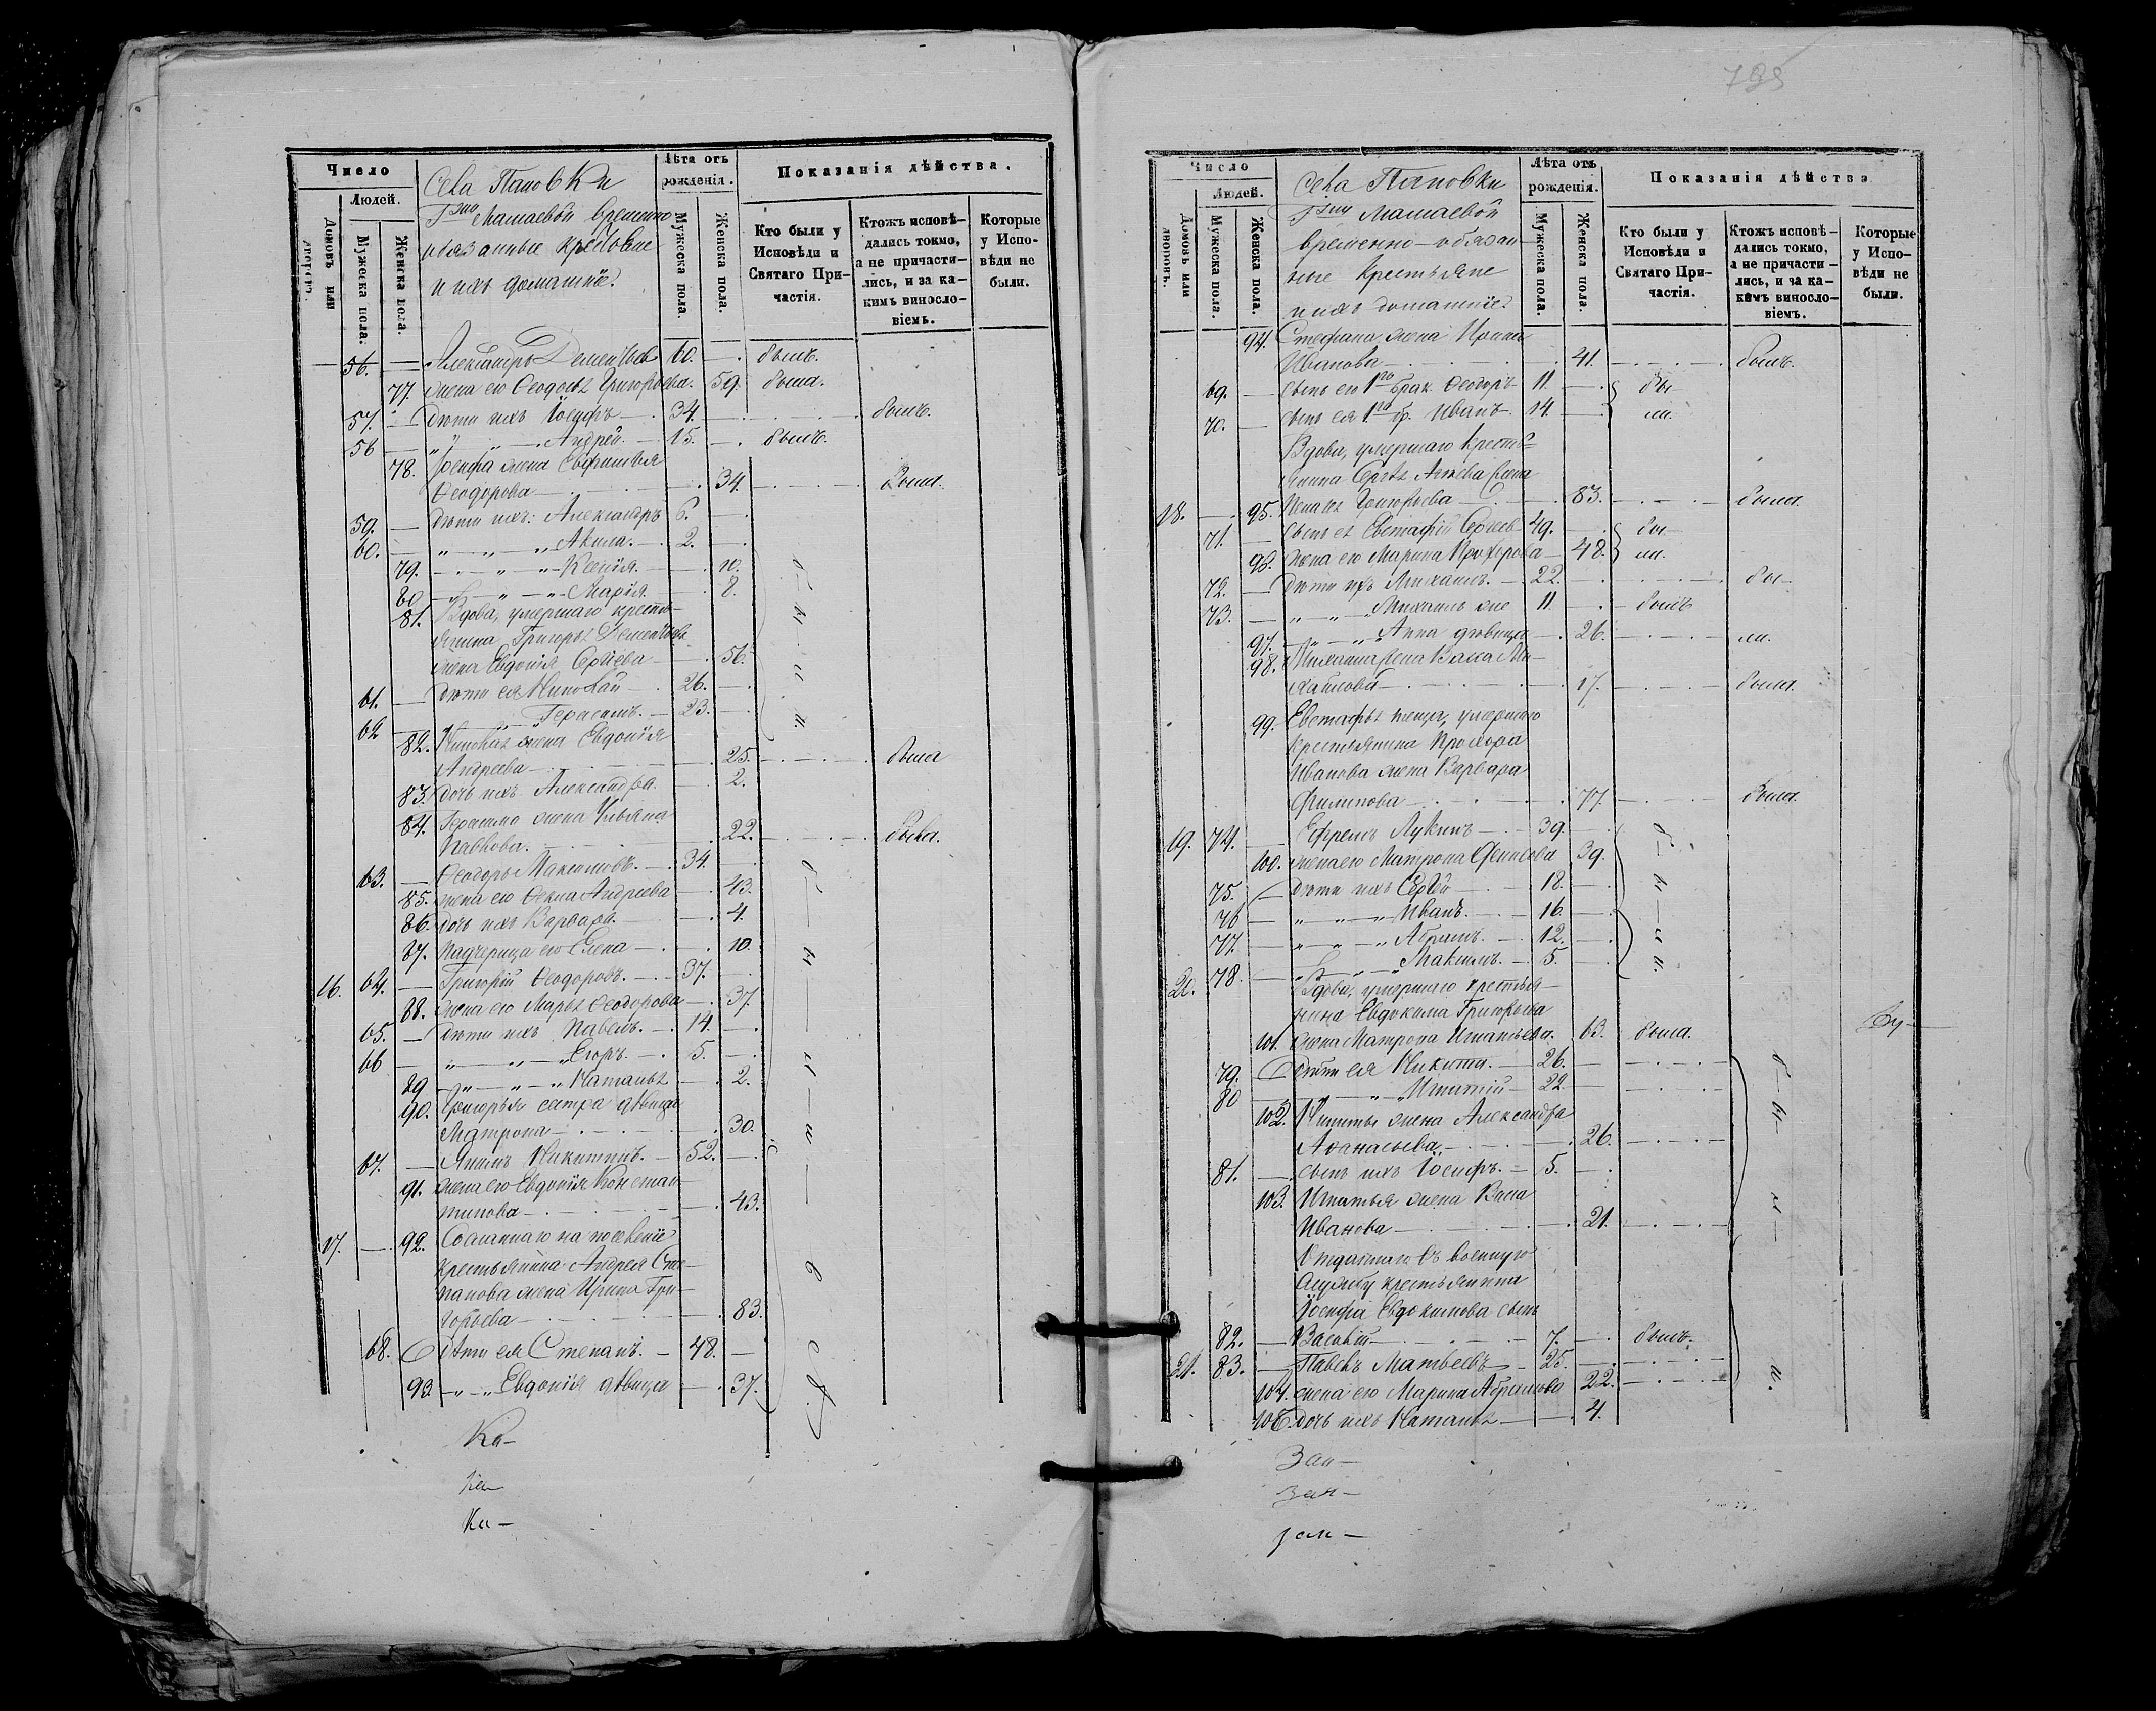 Число
Людей.
Домовъ или
Мужеска пола.
Женска пола.
Села Пановки
Г-жи Машаевой временно
обязанные крестьяне
и ихъ домашніе.
Лѣта отъ
рожденія.
Мужеска пола.
Женска пола.
Показанія дѣйства.
Кто были у
Исповѣди и
Святаго При-
частія.
Ктожъ исповѣ-
дались токмо,
а не причасти-
лись, и за ка-
кимъ виносло-
віемъ.
Которые
у Испо-
вѣди не
были.
56. — Александръ Дементьевъ 60. — былъ.
77. жена его Ѳеодосья Григорьева. 59. была.
57. — Дѣти ихъ Іосифъ — 34. — былъ.
58 — „ „ — Андрей. — 15. — былъ.
78. Іосифа жена Евфимія
Ѳеодорова — 34. — была.
59. — Дѣти ихъ: Александръ 6. —
60. — „ — „ — „ Акила. — 2. —
79. — „ — „ — Ксенія. — 10.
80 — „ — „ — Марія. — 8.
81. Вдова, умершаго кресть-
янина Григорья Дементьева
жена Евдокія Сергіева — 56.
61. — Дѣти ея Николай — 26. —
62 — „ — „ Герасимъ. — 23. —
82. Николая жена Евдокія
Андреева — 25. — была
83. дочь ихъ Александра 2.
84. Герасима жена Ульяна
Павлова. 22. — была.
63. — Ѳеодоръ Максимовъ. — 34. —
85. жена его Ѳекла Андреева — 43.
86. дочь ихъ Варвара. — 4.
87. падчерица его Елена — 10.
16. 64. — Григорій Ѳеодоровъ. — 37. —
88. жена его Марья Ѳеодорова — 37
65. — Дѣти ихъ Павелъ. — 14. —
66 — „ — „ — „ Егоръ. — 5. —
89 — „ — „ — „ Наталья — 2.
90. Григорья сестра дѣвица
Матрона — 30.
67. — Якимъ Никитинъ. — 52. —
91. жена его Евдокія Констан-
тинова — 43.
17. — 92. Сосланнаго на поселеніе
крестьянина Андрея Сте-
панова жена Ирина Гри-
горьева — 83.
68. Дѣти ея Степанъ. — 48. —
93. — „ — „ Евдокія дѣвица — 37.
Ка-
Ка-
795
Число
Людей.
Домовъ или
Мужеска пола.
Женска пола.
Села Пановки
Г-жи Машаевой
временно-обязан-
ные крестьяне
и ихъ домашніе.
Лѣта отъ
рожденія.
Мужеска пола.
Женска пола.
Показанія дѣйства
Кто были у
Исповѣди и
Святаго При-
частія.
Ктожъ исповѣ-
дались токмо,
а не причасти-
лись, и за ка-
кимъ виносло-
віемъ.
Которые
у Испо-
вѣди не
были.
94. Стефана жена Ирина
Иванова — 41. — былъ.
69. — сынъ его 1го брак. Ѳеодоръ 11. — бы-
70. — сынъ ея 1го бр. Иванъ. 14. — ли.
Вдова, умершаго кресть-
янина Сергѣя жена
18. — 95. Григорьева — 83. — была.
71. — сынъ ея Евстафій Сергѣевъ 49. — бы
96. жена его Марина Прохорова — 48. ли.
72. — Дѣти ихъ Михаилъ. — 22. — бы-
73. — „ — „ Михаилъ же 11. — былъ
97. — „ — „ Анна дѣвица — 26. — ли.
98. Михаила жена Васса Ми-
хайлова — 17. — была.
99. Евстафья теща, умершаго
крестьянина Прохора
Иванова жена Варвара
Филипова — 77. — была.
19. 74. — Ефремъ Лукинъ — 39. —
100. жена его Матрона 39.
75. — Дѣти ихъ Сергѣй — 18. —
76 — „ — „ — „ Иванъ. — 16. —
77. — „ — „ — „ Абрамъ. — 12. —
20. 78. — „ — „ — Максимъ. — 5. —
Вдова, умершаго крестья-
нина Евдокима Григорьева
101. жена Матрона Игнатьева. 63. была.
79. Дѣти ея Никита. — 26. —
80 — „ — „ Игнатій — 22. —
102. Никиты жена Александра
Аѳанасьева — 26.
81. — сынъ ихъ Іосифъ. — 5. —
103. Игнатья жена Васса
Иванова — 21.
Отданнаго въ военную
службу крестьянина
Іосифа Евдокимова сынъ
82. — Василій — 7. — былъ.
21. 83. — Павелъ Матвеевъ — 25. —
104. жена его Марина Абрамова 22. —
105. дочь ихъ Наталья — 4.
Зап-
Зап-